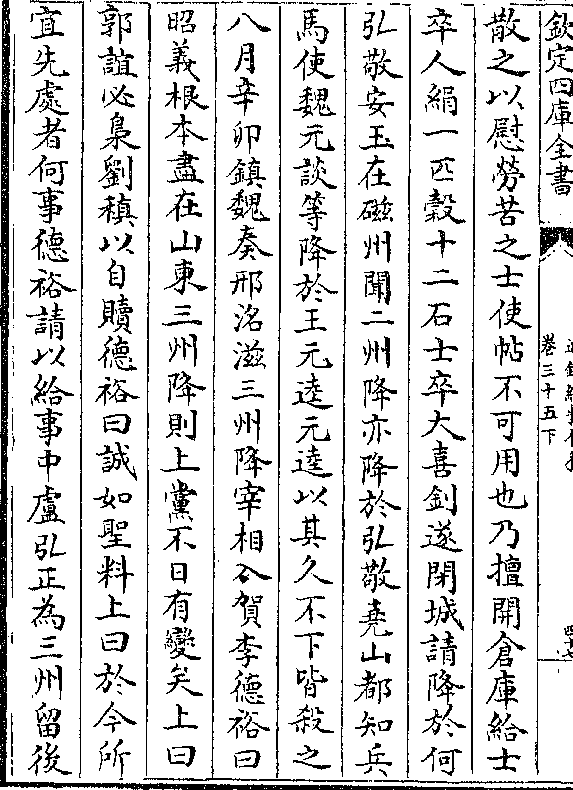 欽定四庫全書
卷三十五下
散之以慰勞苦之士使帖不可用也乃擅開倉庫給士
卒人絹一匹穀十二石士卒大喜釗遂閉城請降於何
弘敬安玉在磁州聞二州降亦降於弘敬堯山都知兵
馬使魏元談等降於王元逵元逵以其久不下皆殺之
八月辛卯鎮魏奏邢洺滋三州降宰相入賀李德裕曰
昭義根本盡在山東三州降則上黨不日有變矣上曰
郭誼必梟劉稹以自贖德裕曰誠如聖料上曰於今所
宜先處者何事德裕請以給事中盧弘正為三州留後